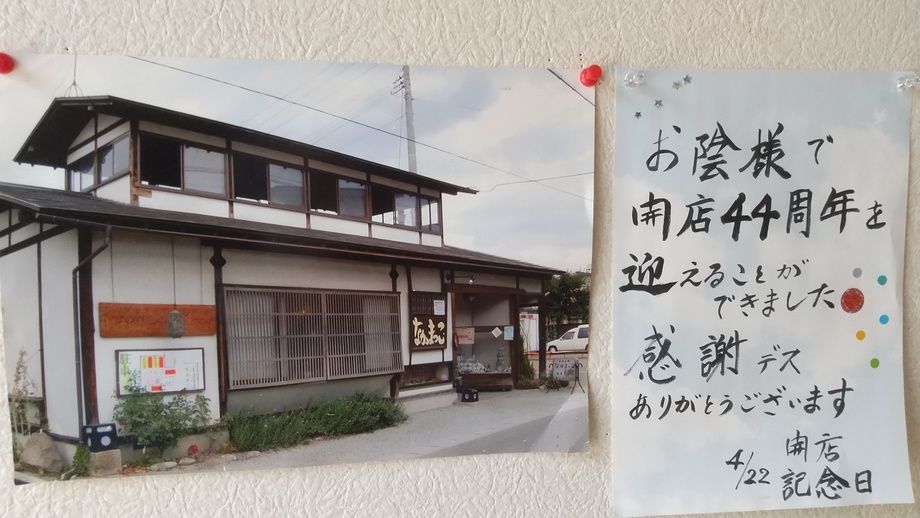 なまっこ
お陰様で
開店44周年を
迎えることが
できました
感謝デス
ありがとうございます
4/22 開店
記念日